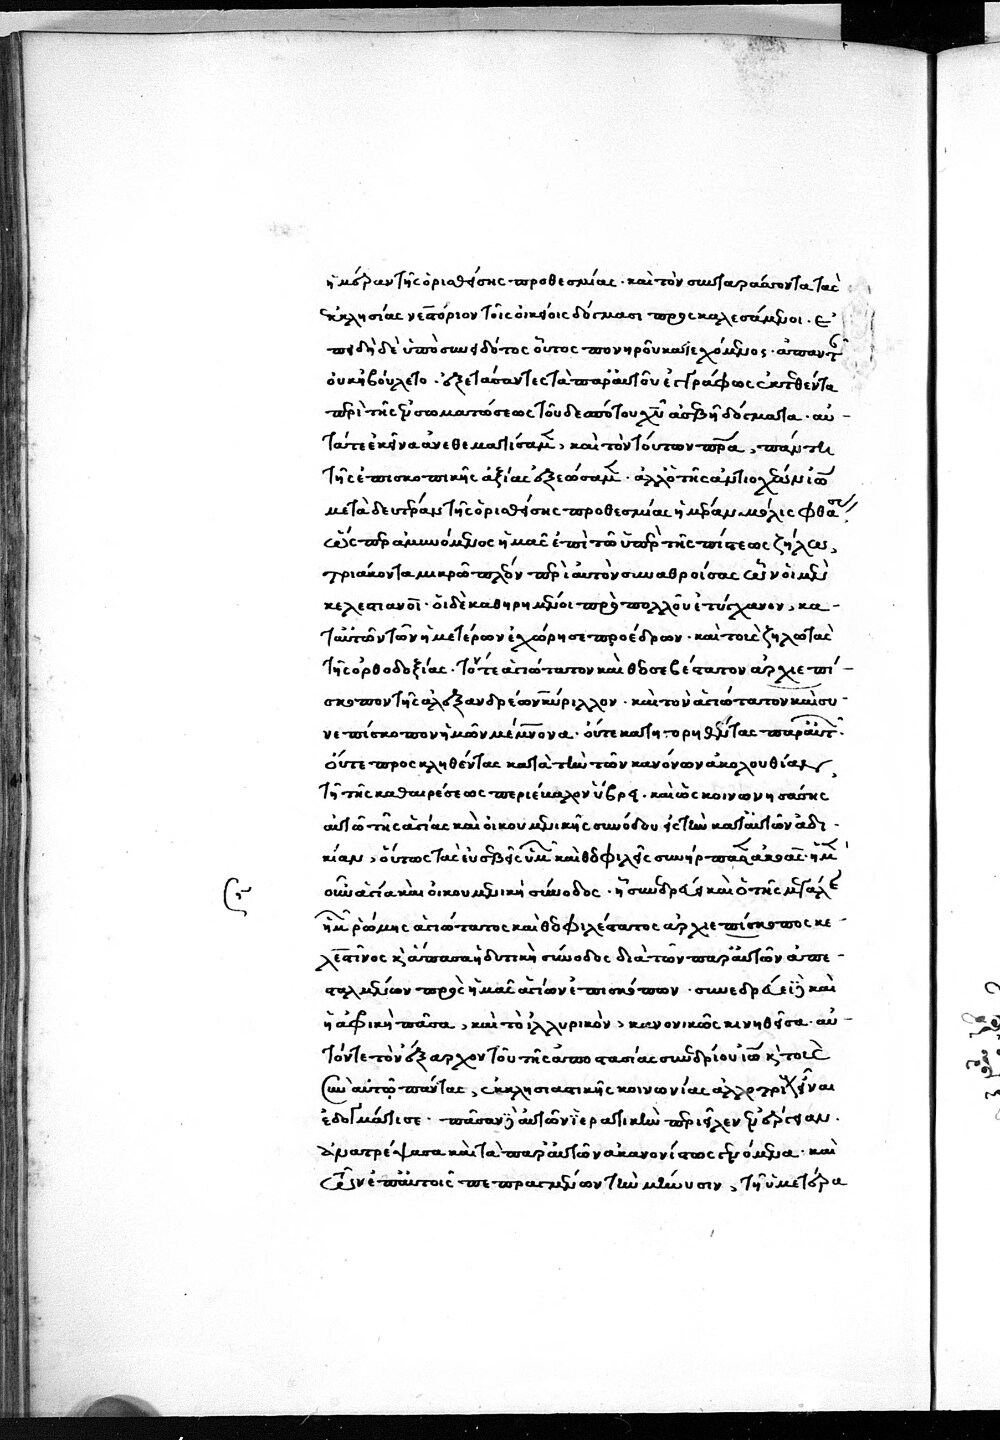 ἡμέραν τῆς ὁρισθείσης προθεσμίας· καὶ τὸν συνταράσσοντα τὰς
ἐκκλησίας νεστόριον τοῖς οἰκείοις δόγμασι προσκαλεσάμενοι· ἐ
πειδὴ δὲ ὑπὸ συνειδότος οὗτος πονηροῦ κατεχόμενος· ἀπαντᾶν
οὐκ ἠβούλετο· ἐξετάσαντες τὰ παρ' αὐτοῦ ἐγγράφως ἐκτεθέντα
περὶ τῆς ἐνσωματώσεως τοῦ δεσπότου χῦ ἀσεβῆ δόγματα· αὐ-
τά τε ἐκεῖνα ἀνεθεματίσαμεν, καὶ τὸν τούτων πρα, πάντη
τῆς ἐπισκοπικῆς ἀξίας ἐξεώσαμεν· ἀλλ' ὁ τῆς ἀντιοχέων ἰω
μετὰ δευτέραν τῆς ὁρισθείσης προθεσμίας ἡμέραν μόλις φθάσας,
ὡς παραμυνόμενος ἡμᾶς ἐπὶ τῶ ὑπὲρ τῆς πίστεως ζήλω,
τριάκοντα μικρῶ πλέον περὶ αὐτὸν συναθροίσας ὧν οἱ μὲν
κελεστιανοὶ· οἱ δὲ καθηρημένοι πρὸ πολλοῦ ἐτύγχανον, κα-
τ' αὐτῶν τῶν ἡμετέρων ἐχώρησε προέδρων· καὶ τοὺς ζηλωτὰς
τῆς ὀρθοδοξίας· τόν τε ἁγιώτατον καὶ θεοσεβέστατον ἀρχιεπί-
σκοπον τῆς ἀλεξανδρέων κύριλλον· καὶ τὸν ἁγιώτατον καὶ συ-
νεπίσκοπον ἡμῶν μέμνονα· οὔτε κατηγορηθέντας παρ' αὐτῶ·
οὔτε προσκληθέντας κατὰ τὴν τῶν κανόνων ἀκολουθίαν,
τῆ τῆς καθαιρέσεως περιέβαλον ὕβρει· καὶ ὡς κοινωνησάσης
αὐτῶ τῆς ἁγίας καὶ οἰκουμενικῆς συνόδου εἰς τὴν κατ' αὐτῶν ἀδι-
κίαν, οὕτως τὰς εὐσεβεῖς ὑμῶν καὶ θεοφιλεῖς συνήρπασαν ἀκοάς· ἡμεῖς
οὖν ἁγία καὶ οἰκουμενικὴ σύνοδος· ἧ συνεδρεύει καὶ ὁ τῆς μεγάλης
ὑμῶν ῥώμης ἁγιώτατος καὶ θεοφιλέστατος ἀρχιεπίσκοπος κε-
λεστῖνος κ ἅπασα ἡ δυτικὴ σύνοδος διὰ τῶν παρ' αὐτῶν ἀπε-
σταλμένων πρὸς ἡμᾶς ἁγίων ἐπισκόπων· συνεδρεύει δὲ καὶ
ἡ ἀφρικὴ πᾶσα, καὶ τὸ ἰλλυρικὸν, κανονικῶς κινηθεῖσα· αὐ-
τόν τε τὸν ἔξαρχον τοῦ τῆς ἀποστασίας συνεδρίου ἰω κ τοὺς
σὺν αὐτῶ πάντας, ἐκκλησιαστικῆς κοινωνίας ἀλλοτρίους εἶναι
ἐδογμάτισε· πᾶσαν δὲ αὐτῶν ἱερατικὴν περιεῖλεν ἐνέργειαν·
ἀνατρέψασα καὶ τὰ παρ' αὐτῶν ἀκανονίστως γενόμενα· καὶ
τῶν ἐπ' αὐτοῖς πεπραγμένων τὴν μήνυσιν, τῆ ὑμετέρα